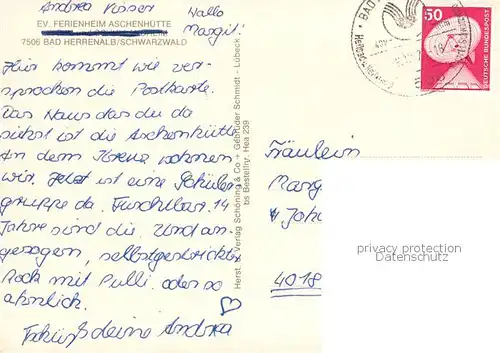 Andrea
Hallo
EV. FERIENHEIM ASCHENHÜTTE
Margit!
7506 BAD HERRENALB/SCHWARZWALD
Hier kommt wie ver-
sprochen die Postkarte.
Das Haus das du da
siehst ist die Aschenhütte
An dem Kreuz wohnen
wir. Jetzt ist eine Schüler
gruppe da. Furchtbar. 14
Jahre sind die. Und an-
gezogen, selbstgestrickter
Rock mit Pulli oder so
ähnlich.
Tschüß deine Andrea
Herst. u. Verlag Schöning & Co + Gebrüder Schmidt - Lübeck
Bestellnr. Hea 239
BAD
50
DEUTSCHE BUNDESPOST
Fräulein
Marg
Joh
4018
privacy protection
Datenschutz